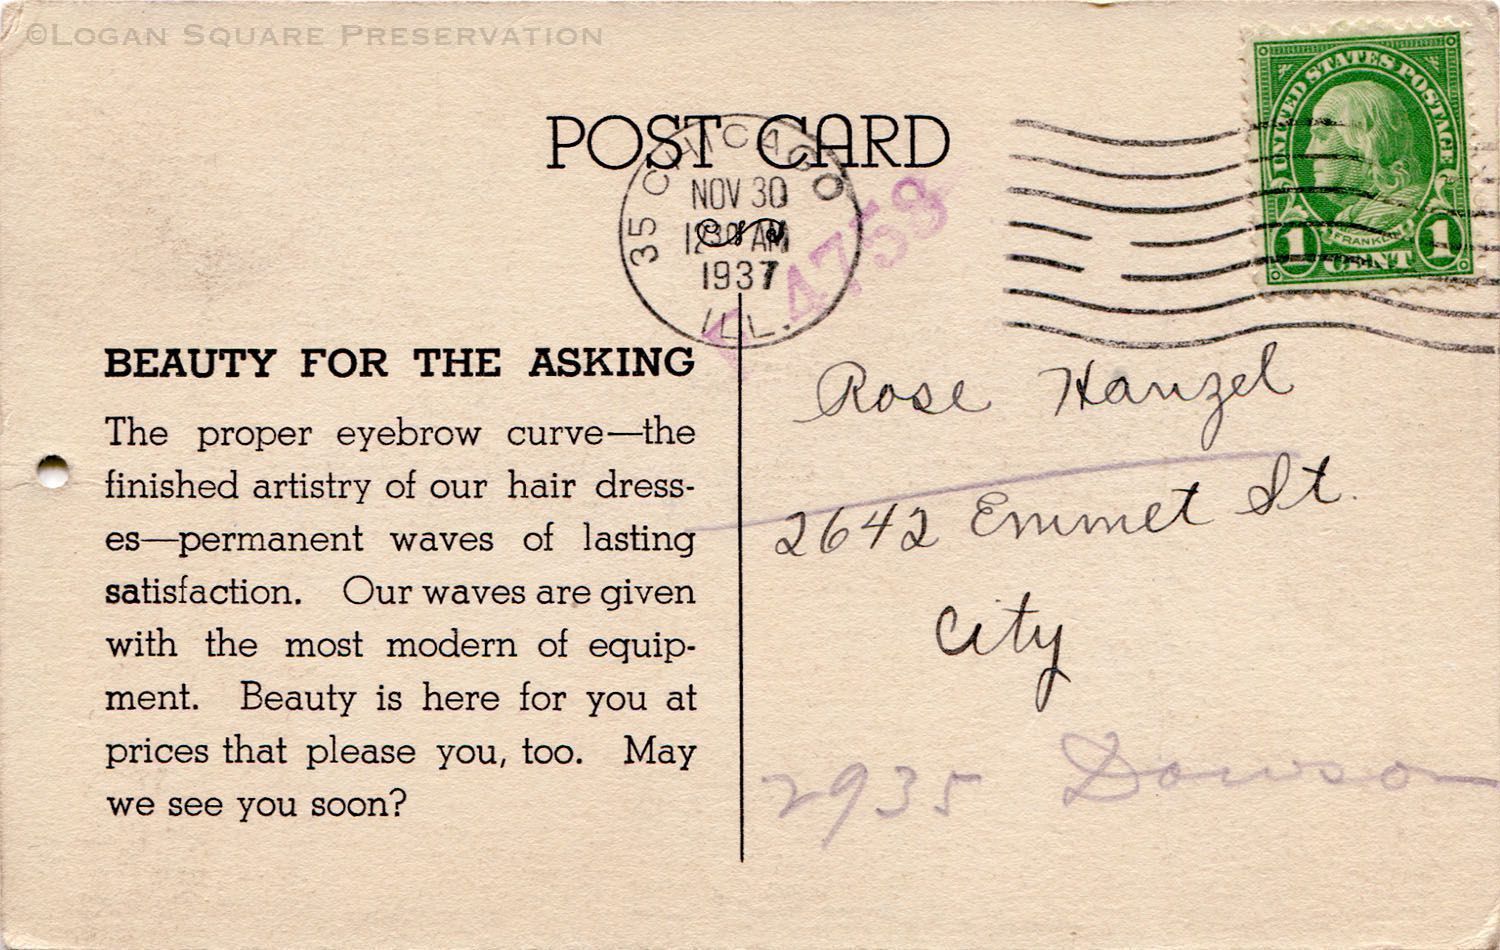 ©Logan Square Preservation
POST CARD
35 CHICAGO
NOV 30
AM
1937
ILL.
4758
UNITED STATES POSTAGE
FRANKLIN
1 CENT 1
BEAUTY FOR THE ASKING
The proper eyebrow curve—the
finished artistry of our hair dress-
es—permanent waves of lasting
satisfaction. Our waves are given
with the most modern of equip-
ment. Beauty is here for you at
prices that please you, too. May
we see you soon?
Rose Hanzel
2642 Emmet St.
City
2935 Dawson